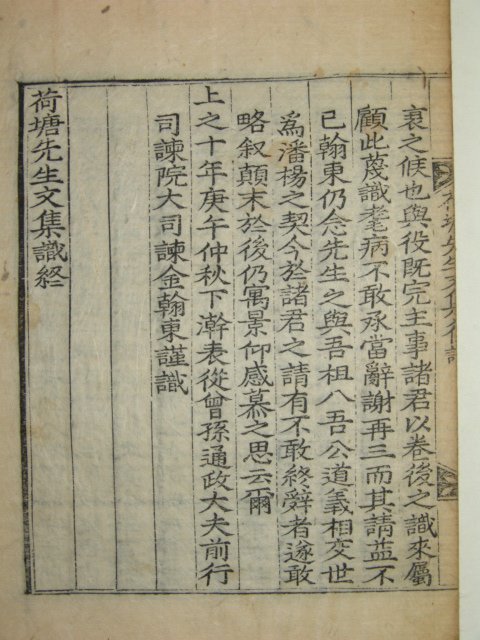 裒之候也與役旣完主事諸君以卷後之識來屬
顧此蔑識耄病不敢承當辭謝再三而其請益不
已翰東仍念先生之與吾祖八吾公道義相交世
爲潘楊之契今於諸君之請有不敢終辭者遂敢
略叙顛末於後仍寓景仰感慕之思云爾
上之十年庚午仲秋下澣表從曾孫通政大夫前行
司諫院大司諫金翰東謹識
荷塘先生文集識終